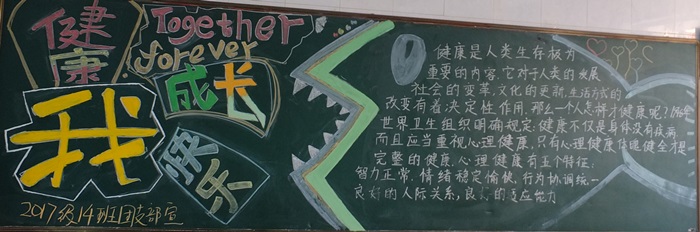 健康
Together
forever
成长
我
快乐
2017级14班团支部宣
健康是人类生存极为
重要的内容,它对于人类的发展
社会的变革,文化的更新,生活方式的
改变有着决定性作用,那么一个人怎样才健康呢?
世界卫生组织明确规定:健康不仅是身体没有疾病
而且应当重视心理健康,只有心理健康
完整的健康,心理健康有五个特征:
智力正常,情绪稳定愉快,行为协调统一
良好的人际关系,良好的适应能力